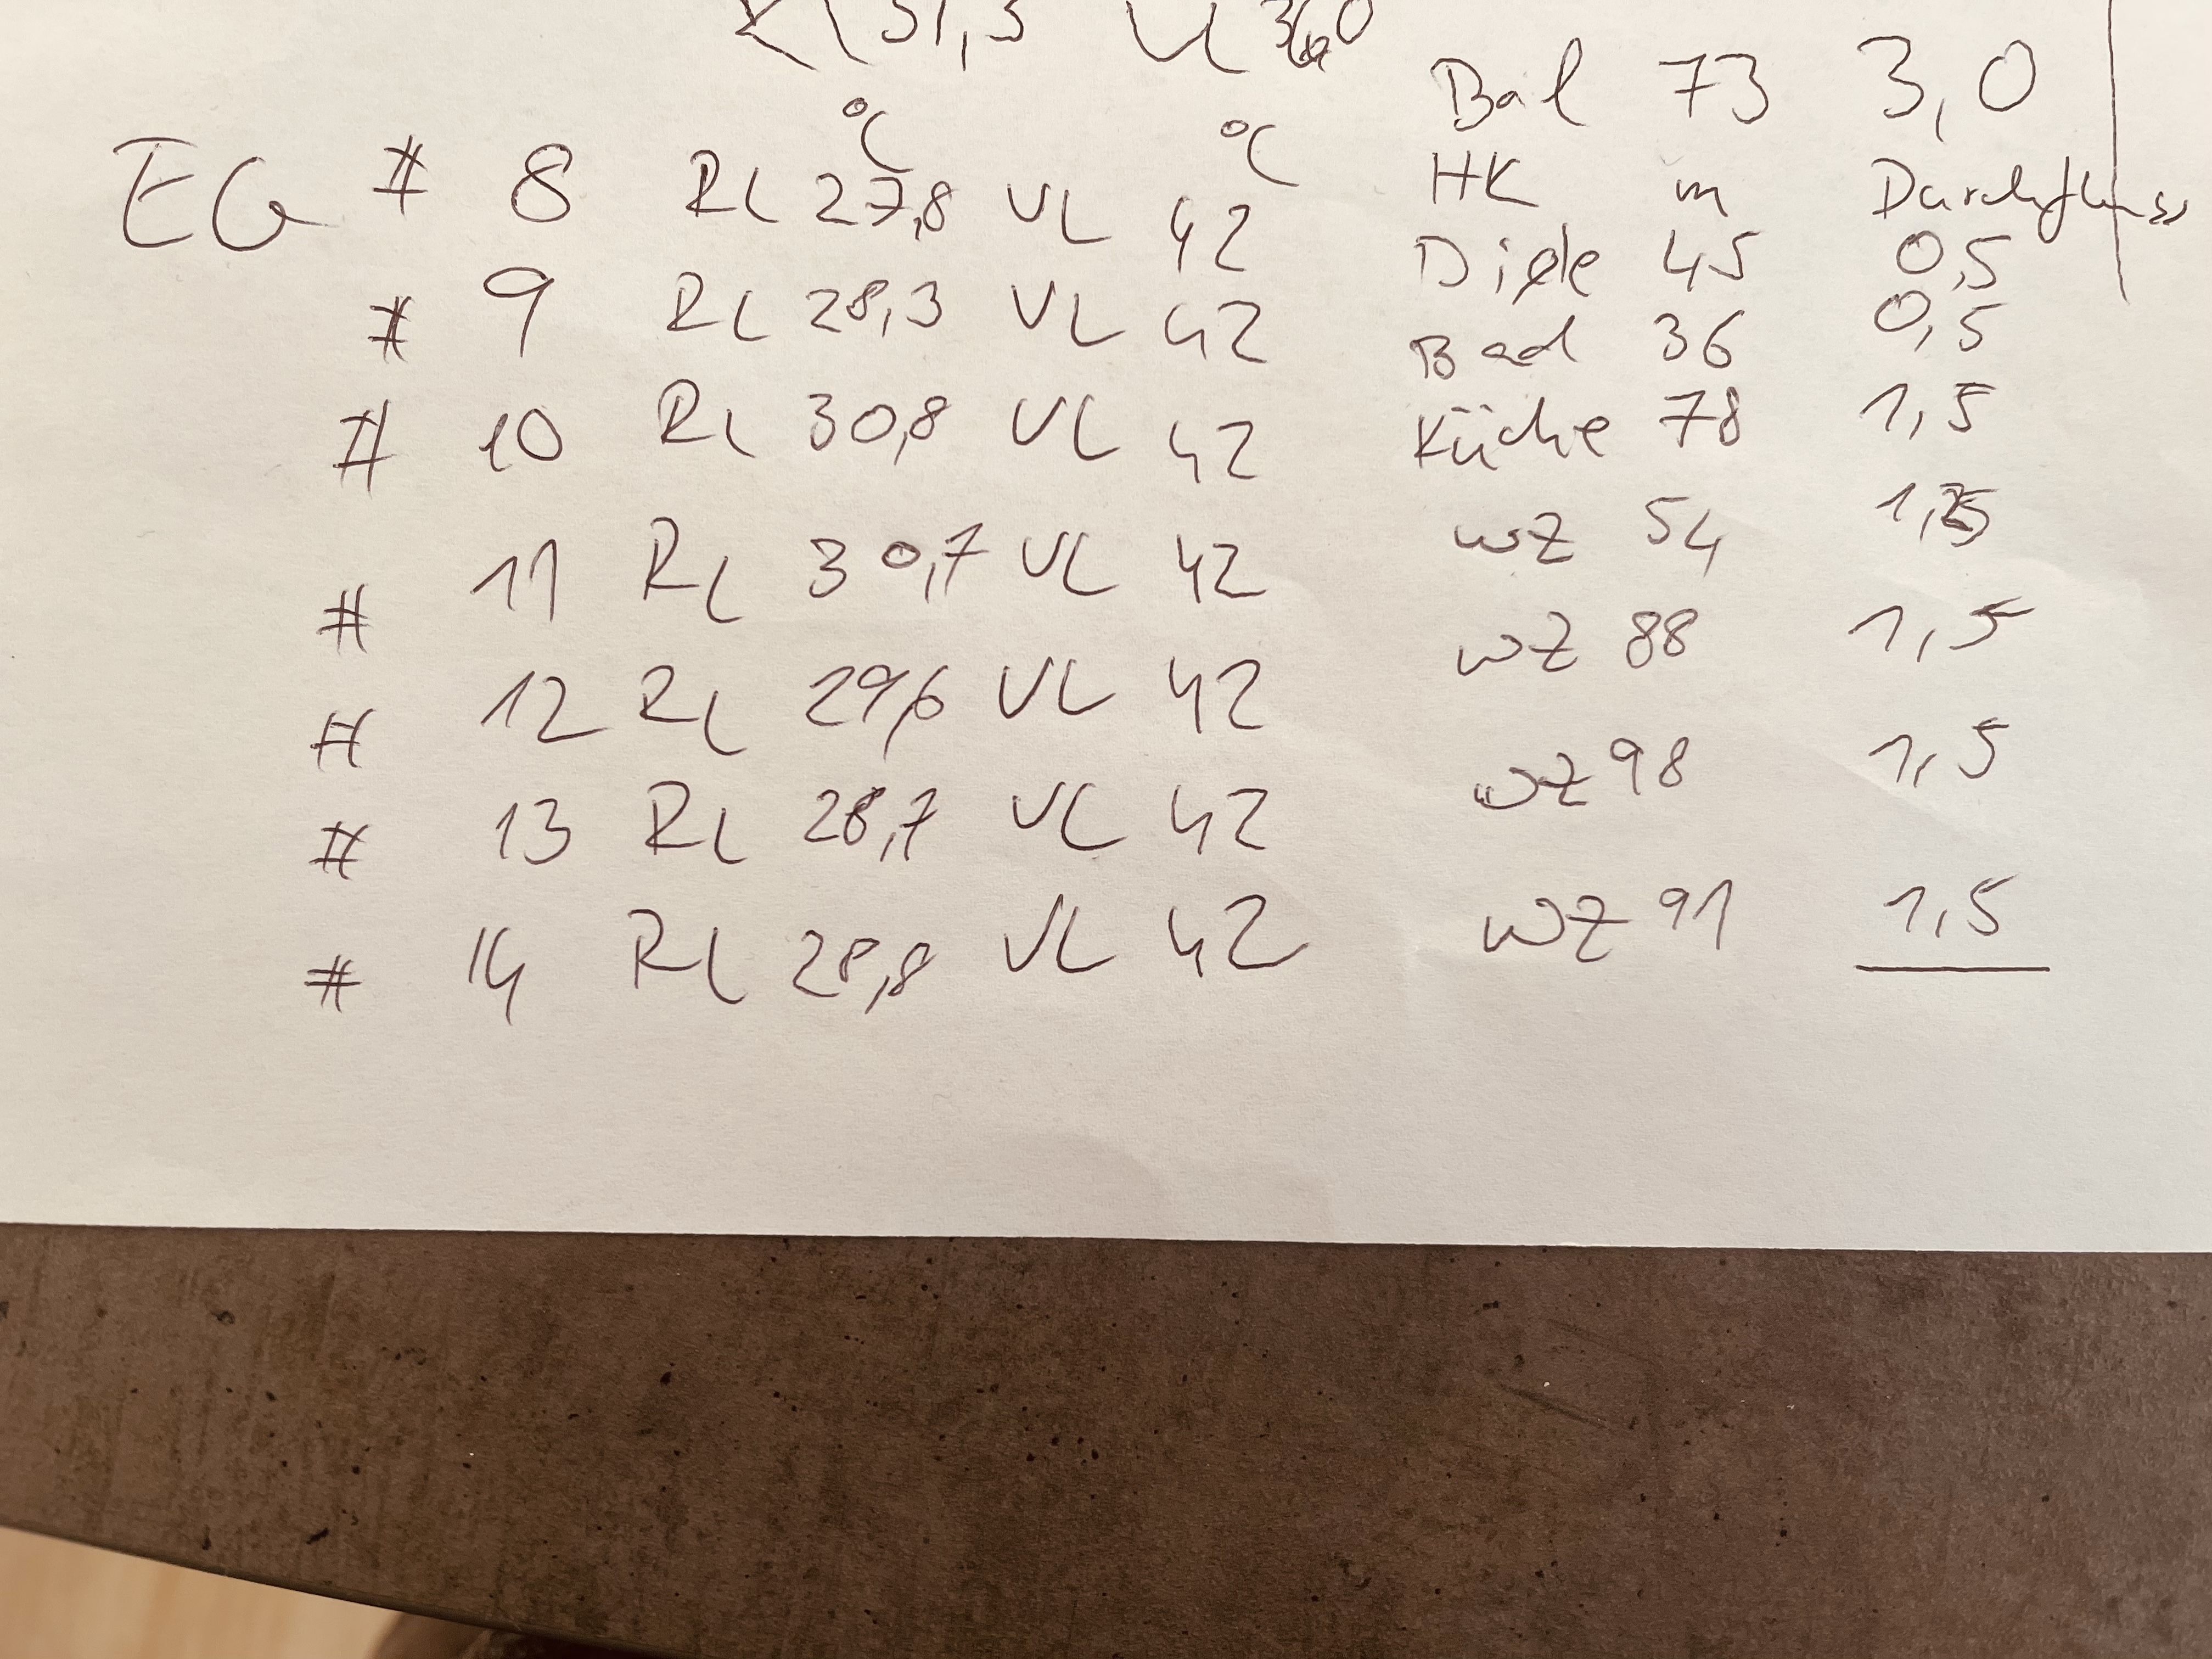 RL 31,3 VL 36,0
Bad 73 3,0
°C °C
EG # 8 RL 27,8 VL 42 HK m Durchfluss
Diele 45 0,5
# 9 RL 28,3 VL 42 Bad 36 0,5
# 10 RL 30,8 VL 42 Küche 78 1,5
# 11 RL 30,7 VL 42 WZ 54
# 12 RL 29,6 VL 42 WZ 88 1,5
# 13 RL 28,7 VL 42 WZ 98 1,5
# 14 RL 28,8 VL 42 WZ 91 1,5